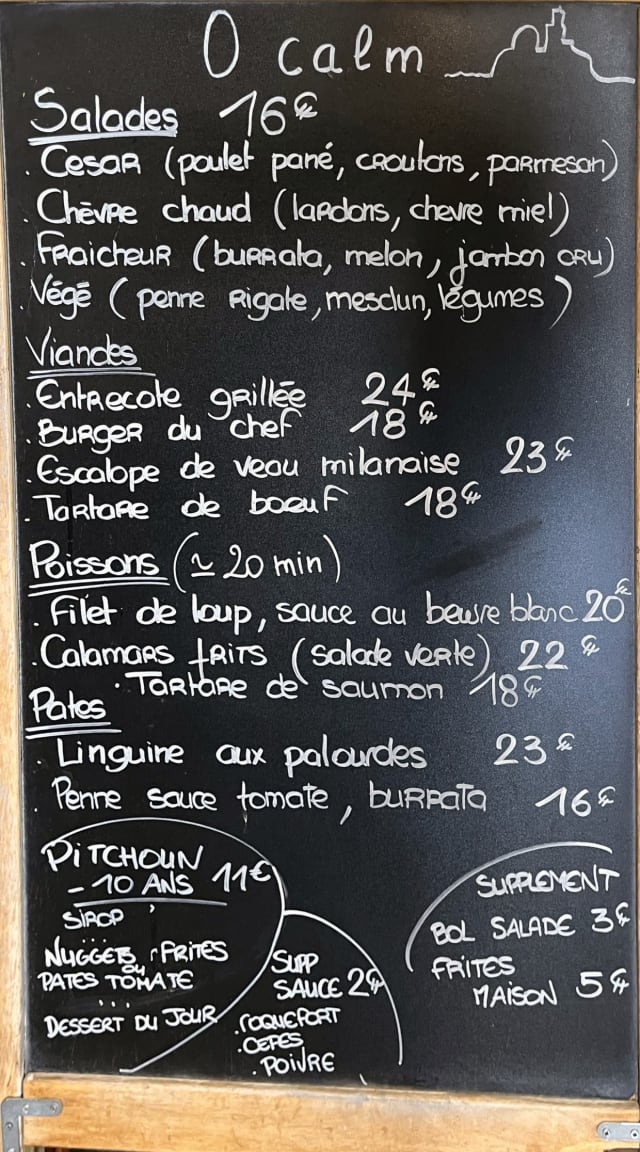 O calm
Salades 16€
. Cesar (poulet pané, croutons, parmesan)
. Chèvre chaud (lardons, chevre miel)
. Fraicheur (burrata, melon, jambon cru)
. Végé (penne rigate, mesclun, légumes)
Viandes
. Entrecote grillée 24€
. Burger du chef 18€
. Escalope de veau milanaise 23€
. Tartare de boeuf 18€
Poissons (≃ 20 min)
. Filet de loup, sauce au beurre blanc 20€
. Calamars frits (salade verte) 22€
. Tartare de saumon 18€
Pates
. Linguine aux palourdes 23€
. Penne sauce tomate, burrata 16€
PITCHOUN
- 10 ANS 11€
SIROP
...
NUGGETS FRITES
ou
PATES TOMATE
...
DESSERT DU JOUR
SUPP
SAUCE 2€
. ROQUEFORT
. CEPES
. POIVRE
SUPPLEMENT
BOL SALADE 3€
FRITES
MAISON 5€